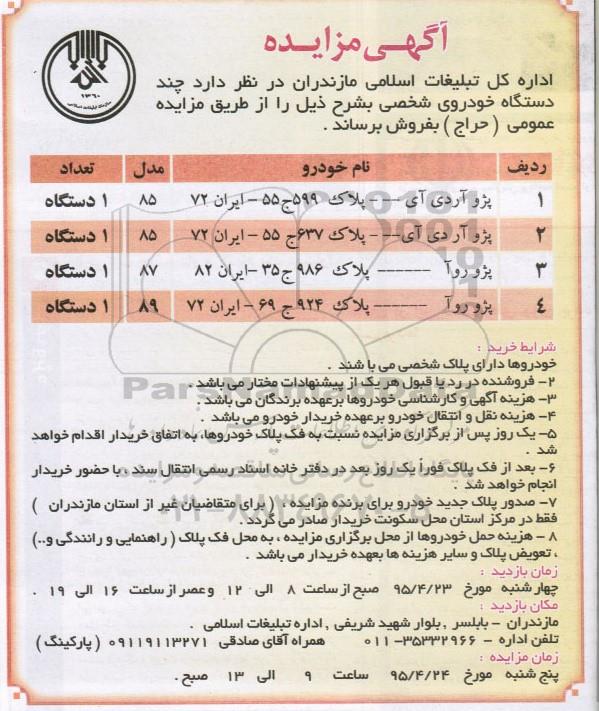 آگهی مزایده
۱۳۶۰
سازمان تبلیغات اسلامی
اداره کل تبلیغات اسلامی مازندران در نظر دارد چند
دستگاه خودروی شخصی بشرح ذیل را از طریق مزایده
عمومی ( حراج ) بفروش برساند .
ردیف نام خودرو مدل تعداد
۱ پژو آردی آی --- پلاک ۵۹۹ج۵۵ - ایران ۷۲ ۸۵ ۱ دستگاه
۲ پژو آر دی آی--- پلاک ۶۳۷ج ۵۵ - ایران ۷۲ ۸۵ ۱ دستگاه
۳ پژو روآ ------ پلاک ۹۸۶ ج۳۵ -ایران ۸۲ ۸۷ ۱ دستگاه
۴ پژو روآ ------ پلاک ۹۲۴ ج ۶۹ - ایران ۷۲ ۸۹ ۱ دستگاه
شرایط خرید :
خودروها دارای پلاک شخصی می با شند .
۲- فروشنده در رد یا قبول هر یک از پیشنهادات مختار می باشد .
۳- هزینه آگهی و کارشناسی خودروها برعهده برندگان می باشد .
۴- هزینه نقل و انتقال خودرو برعهده خریدار خودرو می باشد .
۵- یک روز پس از برگزاری مزایده نسبت به فک پلاک خودروها، به اتفاق خریدار اقدام خواهد
شد .
۶- بعد از فک پلاک فوراً یک روز بعد در دفتر خانه اسناد رسمی انتقال سند ، با حضور خریدار
انجام خواهد شد .
۷- صدور پلاک جدید خودرو برای برنده مزایده ، ( برای متقاضیان غیر از استان مازندران )
فقط در مرکز استان محل سکونت خریدار صادر می گردد .
۸ - هزینه حمل خودروها از محل برگزاری مزایده ، به محل فک پلاک ( راهنمایی و رانندگی و..)
، تعویض پلاک و سایر هزینه ها بعهده خریدار می باشد .
زمان بازدید :
چهار شنبه مورخ ۹۵/۴/۲۳ صبح از ساعت ۸ الی ۱۲ و عصر از ساعت ۱۶ الی ۱۹ .
مکان بازدید :
مازندران - بابلسر ، بلوار شهید شریفی ، اداره تبلیغات اسلامی .
تلفن اداره - ۳۵۳۳۲۹۶۶-۰۱۱ همراه آقای صادقی ۰۹۱۱۹۱۱۳۲۷۱ ( پارکینگ )
زمان مزایده :
پنج شنبه مورخ ۹۵/۴/۲۴ ساعت ۹ الی ۱۳ صبح .